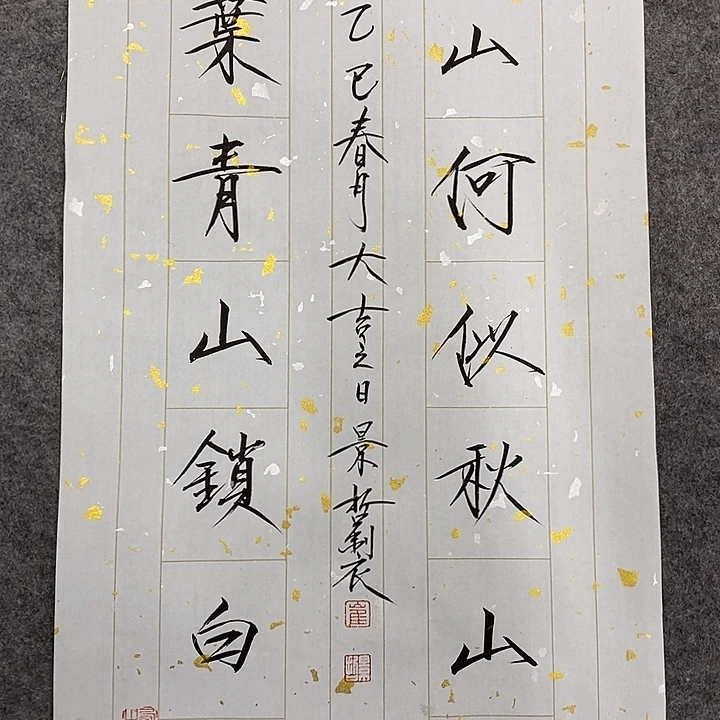 山何似秋山
乙巳春月大吉之日景哲製
崔
葉青山鎖白